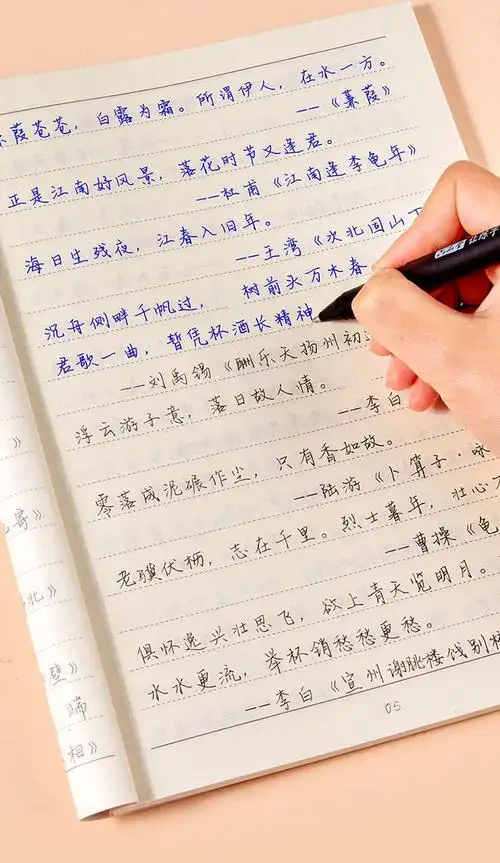 葭苍苍，白露为霜。所谓伊人，在水一方。
——《蒹葭》
正是江南好风景，落花时节又逢君。
——杜甫《江南逢李龟年》
海日生残夜，江春入旧年。
——王湾《次北固山下
沉舟侧畔千帆过， 树前头万木春
君歌一曲，暂凭杯酒长精神
——刘禹锡《酬乐天扬州初
浮云游子意，落日故人情。
——李白
零落成泥碾作尘，只有香如故。
——陆游《卜算子·咏
老骥伏枥，志在千里。烈士暮年，壮心
——曹操《龟
俱怀逸兴壮思飞，欲上青天览明月。
水水更流，举杯销愁愁更愁。
——李白《宣州谢朓楼饯别校
05
》
寄》
北》
壁》
端
相》